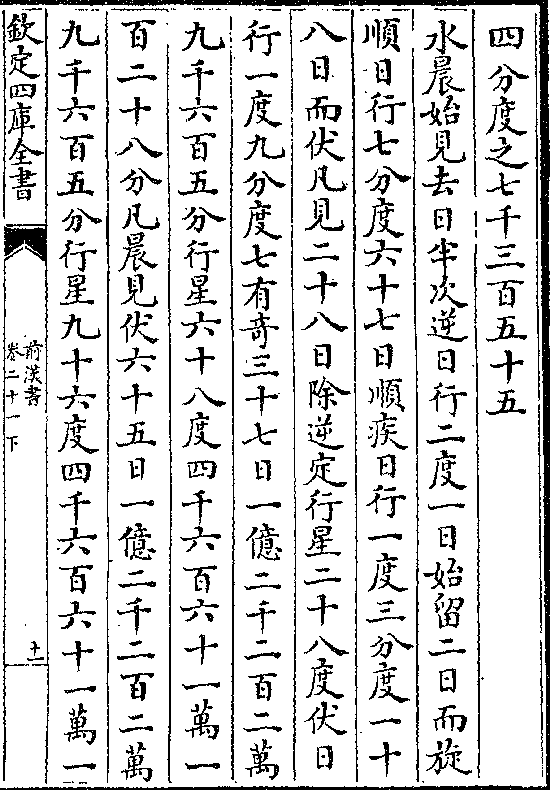 四分度之七千三百五十五
水晨始見去日半次逆日行二度一日始留二日而旋
順日行七分度六十七日順疾日行一度三分度一十
八日而伏凡見二十八日除逆定行星二十八度伏日
行一度九分度七有竒三十七日一億二千二百二萬
九千六百五分行星六十八度四千六百六十一萬一
百二十八分凡晨見伏六十五日一億二千二百二萬
九千六百五分行星九十六度四千六百六十一萬一
欽定四庫全書
前漢書
卷二十一下
十一